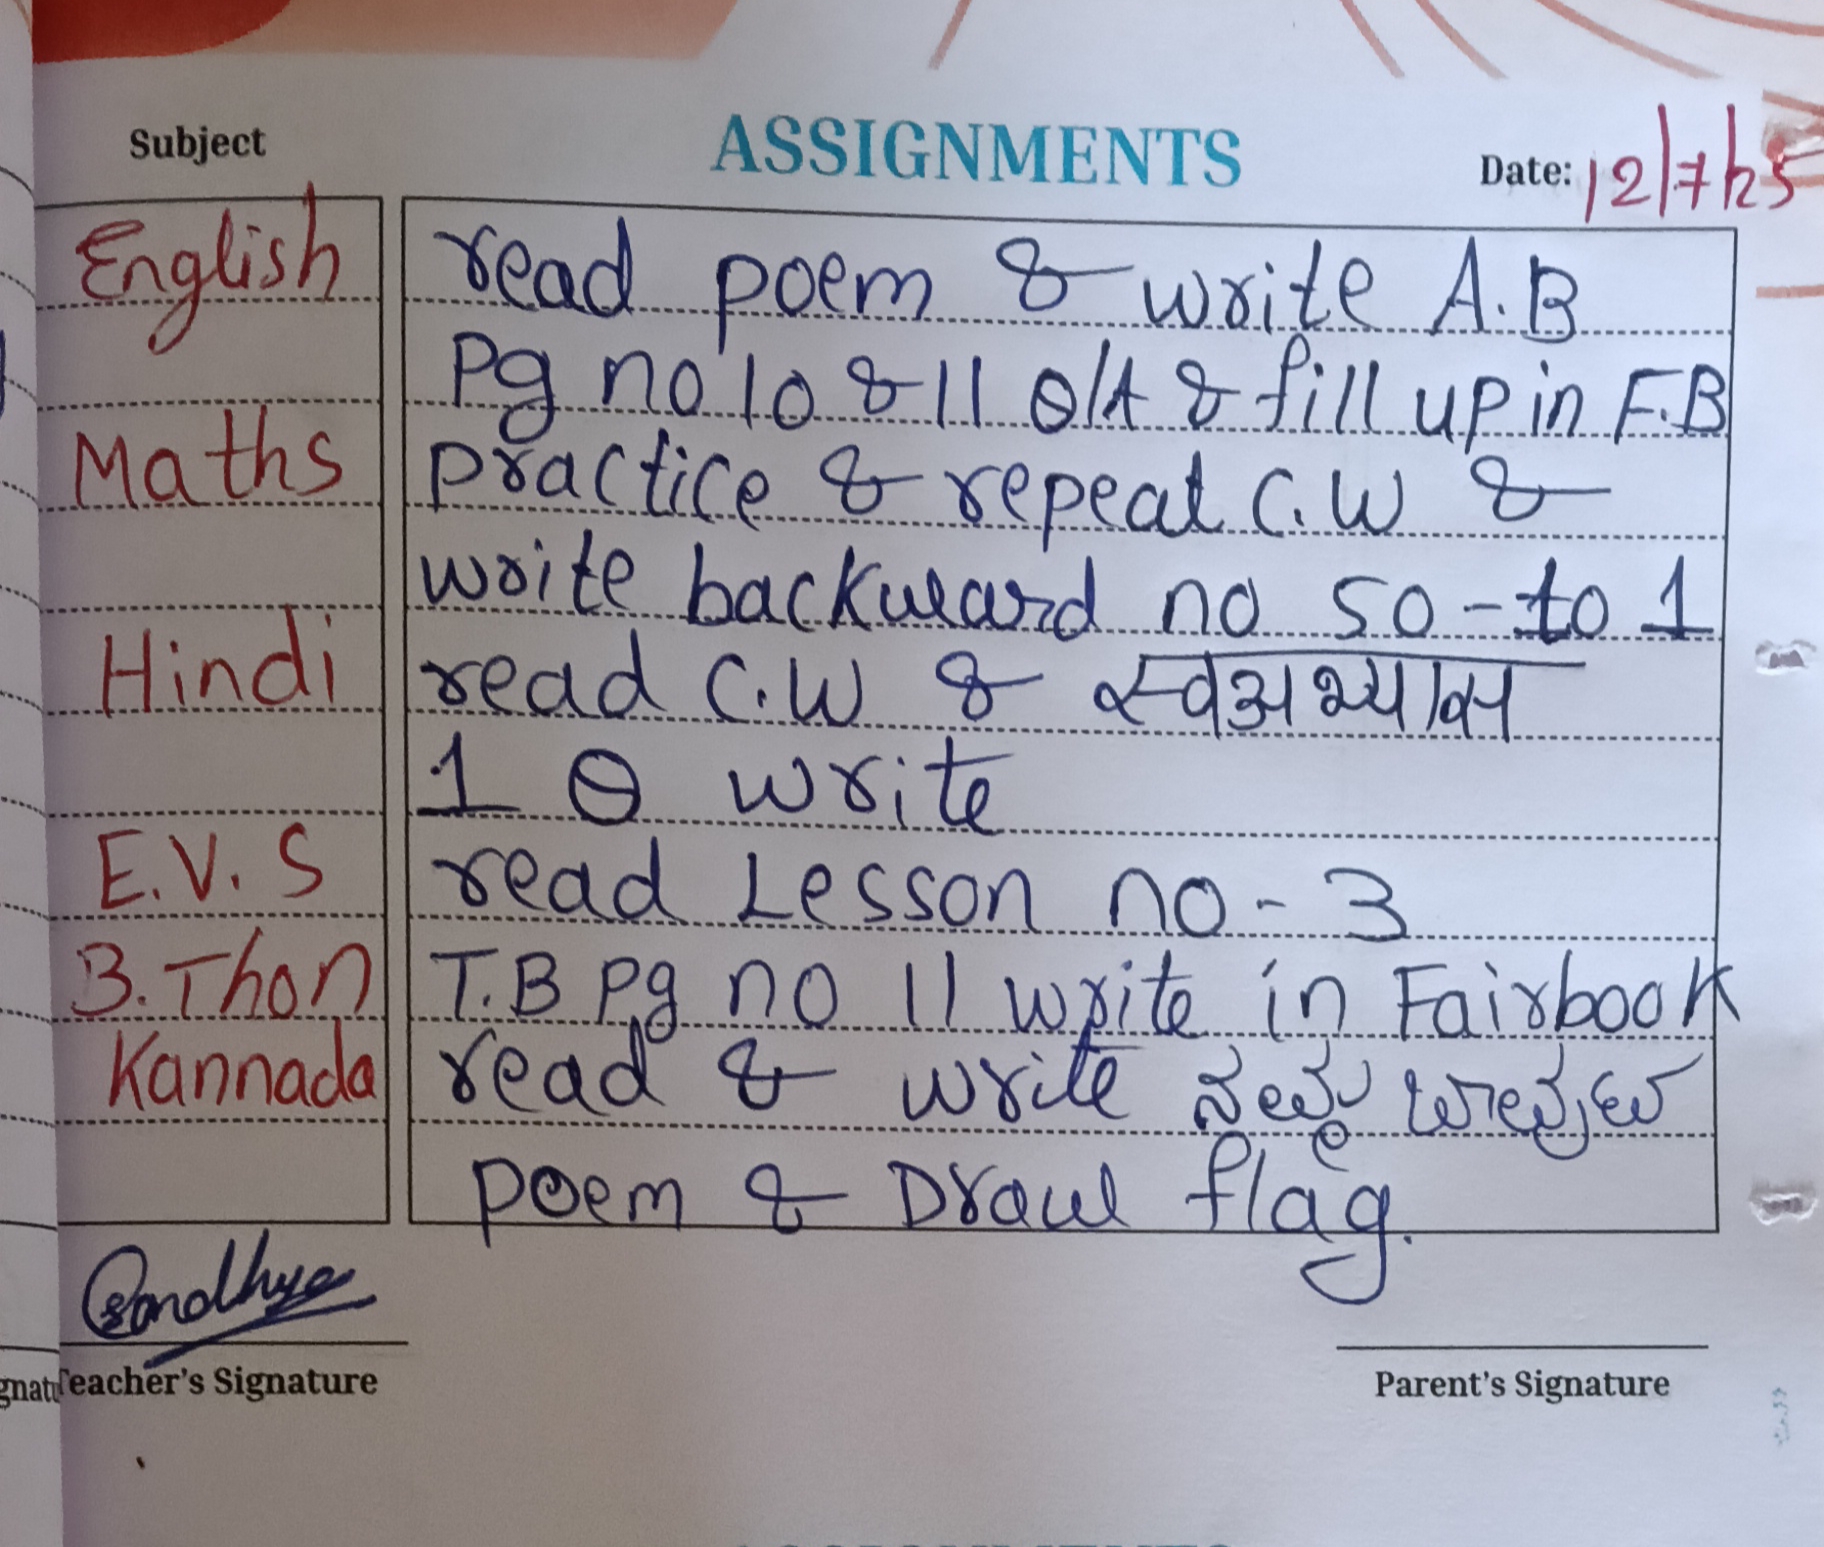 Subject ASSIGNMENTS Date: 12/7/25
English read poem & write A.B
Pg no 10 & 11 Q/A & fill up in F.B
Maths practice & repeat C.W &
write backward no 50 - to 1
Hindi read C.W & स्वअभ्यास
1 Q write
E.V.S read Lesson no - 3
B.Thon T.B Pg no 11 write in Fairbook
Kannada read & write ನಮ್ಮ ಬಾವುಟ
poem & Draw flag.
Sandhya
Teacher's Signature Parent's Signature